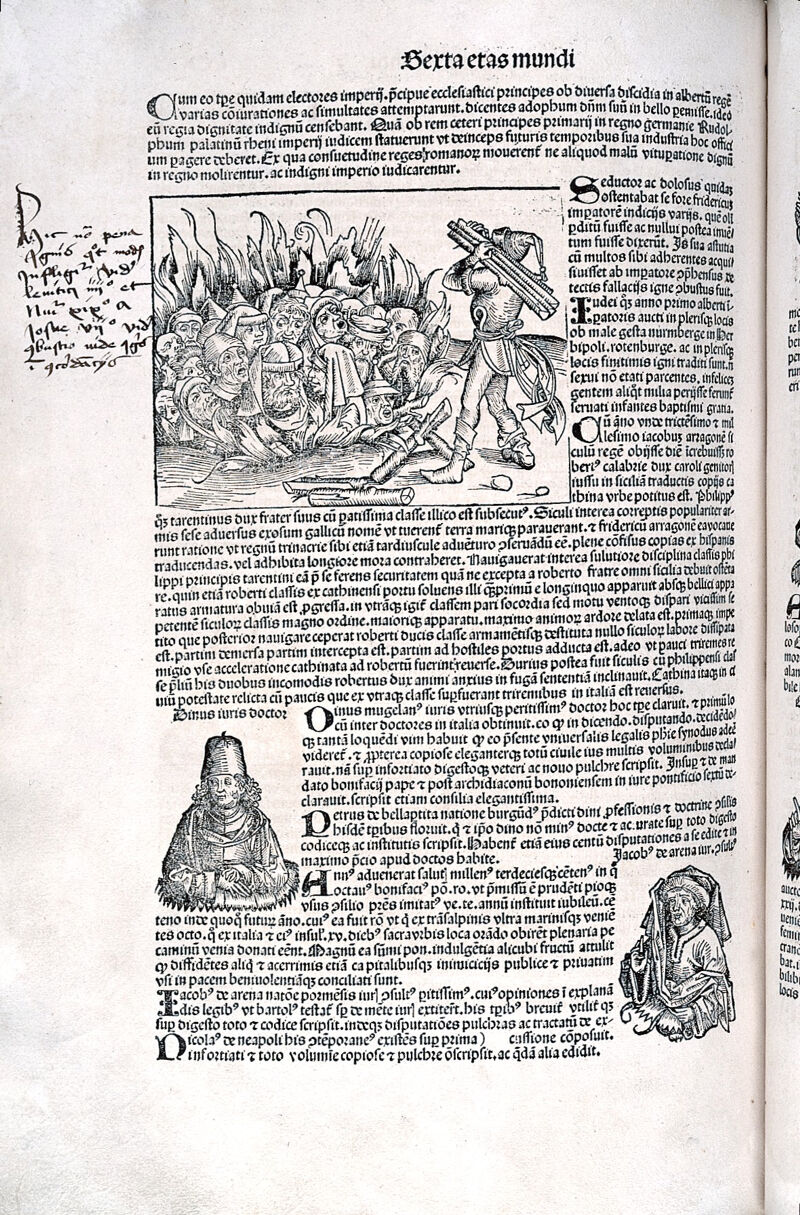 Sexta etas mundi
Cum eo tp̄e quidam electores imperij. p̄cipue ecclesiastici principes ob diuersa discidia in albertū regē
varias coniurationes ac simultates attemptarunt. dicentes adophum dn̄m suū in bello p̱emisse. ideo
eū regia dignitate indignū censebant. Quā ob rem ceteri principes primarij in regno germanie Rudol-
phum palatinū rheni imperij iudicem statuerunt vt deinceps futuris temporibus sua industria hoc offici
um p̱agere deberet. Ex qua consuetudine reges romanoꝝ mouerent̄ ne aliquod malū vitup̱atione dignū
in regno molirentur. ac indigni imperio iudicarentur.
Seductor ac dolosus quidaꝫ
sostentabat se fore fridericuꝫ
impatorē indicijs varijs. quē olī
p̱ditū fuisse ac nullui postea inuē
tum fuisse dixerūt. Is sua astutia
cū multos sibi adherentes acqui
siuisset ab impatore p̱hensus de
tectis fallacijs igne ꝯbustus fuit.
Iudei qꝫ anno primo alberti ī
patoris aucti in plerisqꝫ locis
ob male gesta nürmberge in Her
bipoli. rotenburge. ac in plerisqꝫ
locis finitimis igni traditi sunt. n̄
sexui nō etati parcentes. infelices
gentem aliq̄t milia perijsse ferunt̄
seruati infantes baptismi gratia.
Cū āno vnde trictesimo ⁊ mil
lesimo iacobuꝫ arragonē si
culū regē obijsse diē increbuissꝫ ro
bertꝰ calabrie dux caroli genitorꝫ
iussu in siciliā traductis copijs ca
thina vrbe potitus est. Philippꝰ
qꝫ tarentinus dux frater suus cū p̱atissima classe illico est subsecutꝰ. Siculi interea correptis populariter ar-
mis sese aduersus exosum gallicū nomē vt tuerent̄ terra mariqꝫ parauerant. ⁊ fridericū arragonē euocaue
runt ratione vt regnū trinacrie sibi etiā tardiuscule aduēturo ꝯseruādū eē. plene cōfisus copias ex hispanis
traducendas. vel adhibita longiore mora contraheret. Nauigauerat interea solutiore disciplina classis phi
lippi principis tarentini eā p̄ se ferens securitatem quā ne excepta a roberto fratre omni sicilia debuit ostēta
re. quin etiā roberti classis ex cathinensi portu soluens illi qꝫprimū e longinquo apparuit absqꝫ bellici appa
ratus armatura obuia est ꝓgressa. in vtrāqꝫ igit̄ classem pari socordia sed motu ventoqꝫ dispari vicissim se
petentē siculoꝝ classis magno ordine. maioriqꝫ apparatu. maximo animoꝝ ardore delata est. primaqꝫ impe
tito que posterior nauigare ceperat roberti ducis classe armamētisqꝫ destituta nullo siculoꝝ labore dissipata
est. partim demersa partim intercepta est. partim ad hostiles portus adducta est. adeo vt pauci triremes re
migio vse acceleratione cathinata ad robertū fuerint reuerse. Durius postea fuit siculis cū philippensi clas
se p̄liū his duobus incomodis robertus dux animi anxius in fugā sententiā inclinauit. Cathina itaqꝫ in ci
uiū potestate relicta cū paucis que ex vtraqꝫ classe sup̱fuerant triremibus in italiā est reuersus.
Dinus iuris doctor
Dinus mugelanꝰ iuris vtriusqꝫ peritissimꝰ doctor hoc tp̄e claruit. ⁊ primū lo
cū inter doctores in italia obtinuit. eo ꝙ in dicendo. disputando. decidēdo
qꝫ tantā loquēdi vim habuit ꝙ eo p̄sente vniuersalis legalis
videret̄. ⁊ ꝓpterea copiose eleganterqꝫ totū ciuile ius multis voluminibus decla
rauit. nā suꝑ infortiato digestoqꝫ veteri ac nouo pulchre scripsit. Insuꝑ ⁊ de man
dato bonifacij pape ⁊ post archidiaconū bononiensem in iure pontificio sextū de-
clarauit. scripsit etiam consilia elegantissima.
Petrus de bellapertica natione burgūdꝰ p̄dicti dini ꝓfessionis ⁊ doctrine
hisdē tp̱ibus floruit. q̄ ⁊ ip̄o dino nō minꝰ docte ⁊ accurate suꝑ toto digesto
codiceqꝫ ac institutis scripsit. Habent̄ etiā eius centū disputationes a se edite ⁊ in
maximo p̄cio apud doctos habite.
Jacobꝰ de arena iur. ꝯsultꝰ
Annꝰ aduenerat salutꝫ millenꝰ terdeciesqꝫ cētenꝰ in q̄
octauꝰ bonifaciꝰ pō. ro. vt ꝓmissū ē prudēti pioqꝫ
vsus ꝯsilio prēs imitatꝰ ve. te. annū instituit iubileū. cē
teno inde quoqꝫ futuꝝ āno. cuiꝰ ea fuit rō vt q̄ ex trāsalpinis vltra marinisqꝫ veniē
tes octo. q̄ ex italia ⁊ eiꝰ insulꝭ. xv. diebꝰ sacra vrbis loca orādo obirēt plenaria pec
caminū venia donati eēnt. Magnū ea sūmi pon. indulgētia alicubi fructū attulit
ꝙ diffidētes aliq̄ ⁊ acerrimis etiā capitalibusqꝫ inimicicijs publice ⁊ priuatim
vsi in pacem beniuolentiāqꝫ conciliati sunt.
Jacobꝰ de arena natōne pormēsis iurꝭ ꝯsultꝰ p̱itissimꝰ. cuiꝰ opiniones ī explanā
dis legibꝰ vt bartolꝰ testat̄ sp̄ de mēte iurꝭ extiterūt. his tp̱ibꝰ breuit̄ vtilit̄qꝫ
suꝑ digesto toto ⁊ codice scripsit. indeqꝫ disputatiōnes pulchras ac tractatū de ex-
cussione cōposuit.
Nicolaꝰ de neapoli his ꝯtēporaneꝰ existēs suꝑ prima)
infortiati ⁊ toto volumīe copiose ⁊ pulchre ꝯscripsit. ac q̄dā alia edidit.